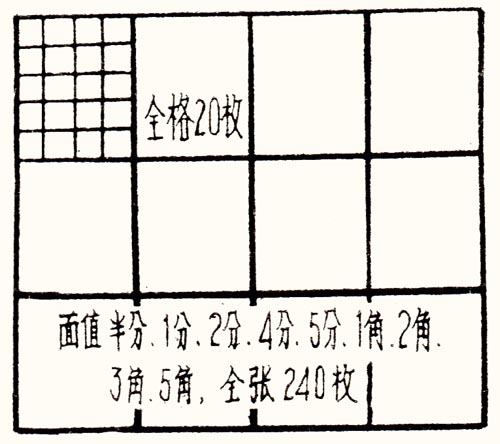 全格20枚
面值半分、1分、2分、4分、5分、1角、2角、
3角、5角，全张240枚